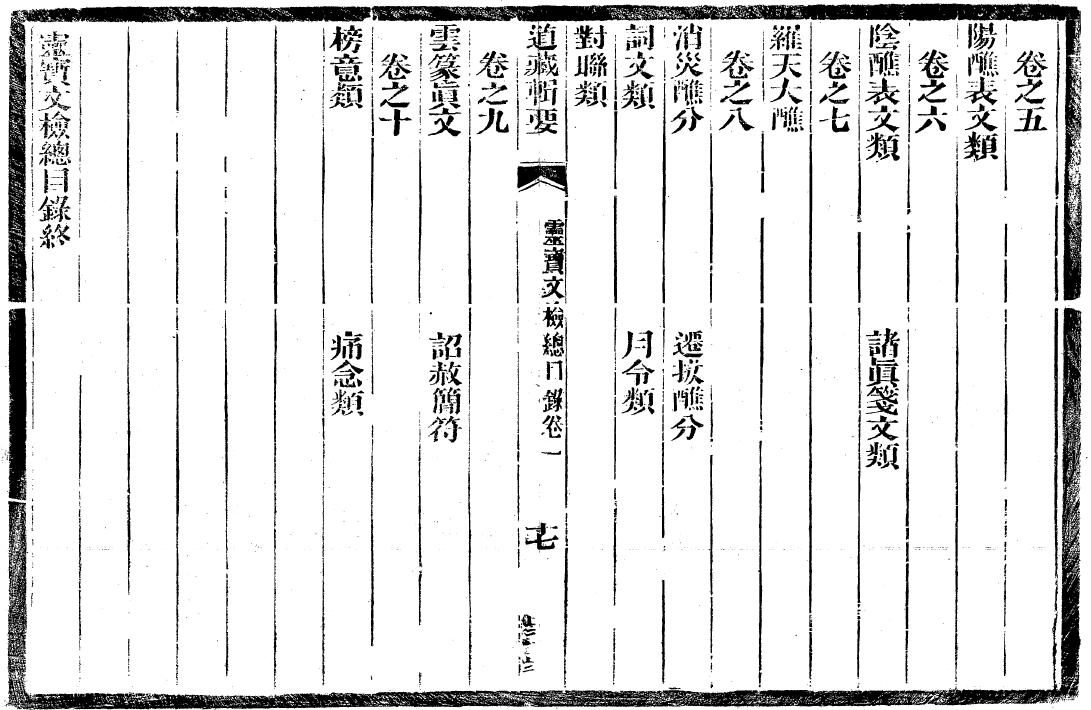 卷之五
陽醮表文類
卷之六
陰醮表文類　諸眞箋文類
卷之七
羅天大醮
卷之八
消災醮分　遷拔醮分
詞文類　月令類
對聯類
道藏輯要　靈寶文檢總目錄卷一　七
卷之九
雲篆眞文　詔赦簡符
卷之十
榜意類　痛念類
靈寶文檢總目錄終